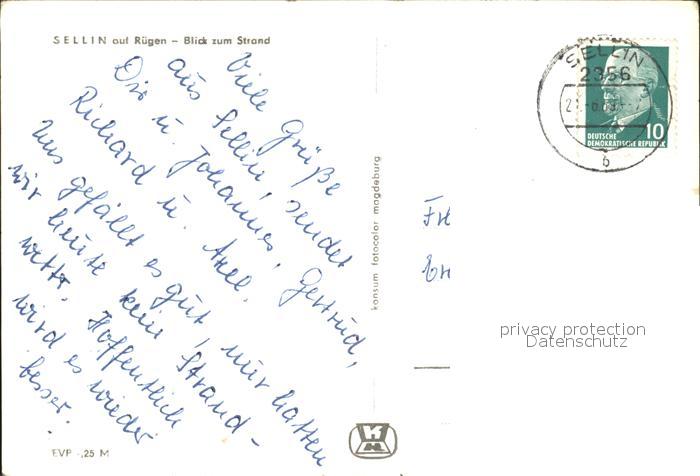 SELLIN auf Rügen – Blick zum Strand
Viele Grüße
aus Sellin, sendet
Dir u. Johannes, Gertrud,
Richard u. Axel.
Uns gefällt es gut, nur hatten
wir heute kein Strand-
wetter. Hoffentlich
wird es wieder
besser.
EVP -,25 M
konsum fotocolor magdeburg
SELLIN
2356
b
10
DEUTSCHE
DEMOKRATISCHE REPUBLIK
privacy protection
Datenschutz